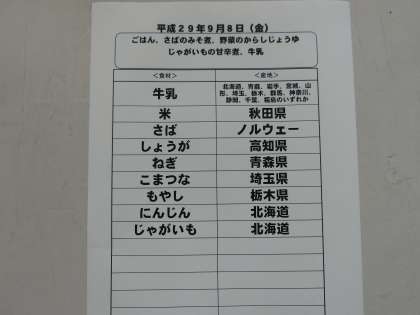 平成29年9月8日（金）
ごはん、さばのみそ煮、野菜のからしじょうゆ
じゃがいもの甘辛煮、牛乳
＜食材＞ ＜産地＞
牛乳 北海道、青森、岩手、宮城、山
形、埼玉、栃木、群馬、神奈川、
静岡、千葉、福島のいずれか
米 秋田県
さば ノルウェー
しょうが 高知県
ねぎ 青森県
こまつな 埼玉県
もやし 栃木県
にんじん 北海道
じゃがいも 北海道